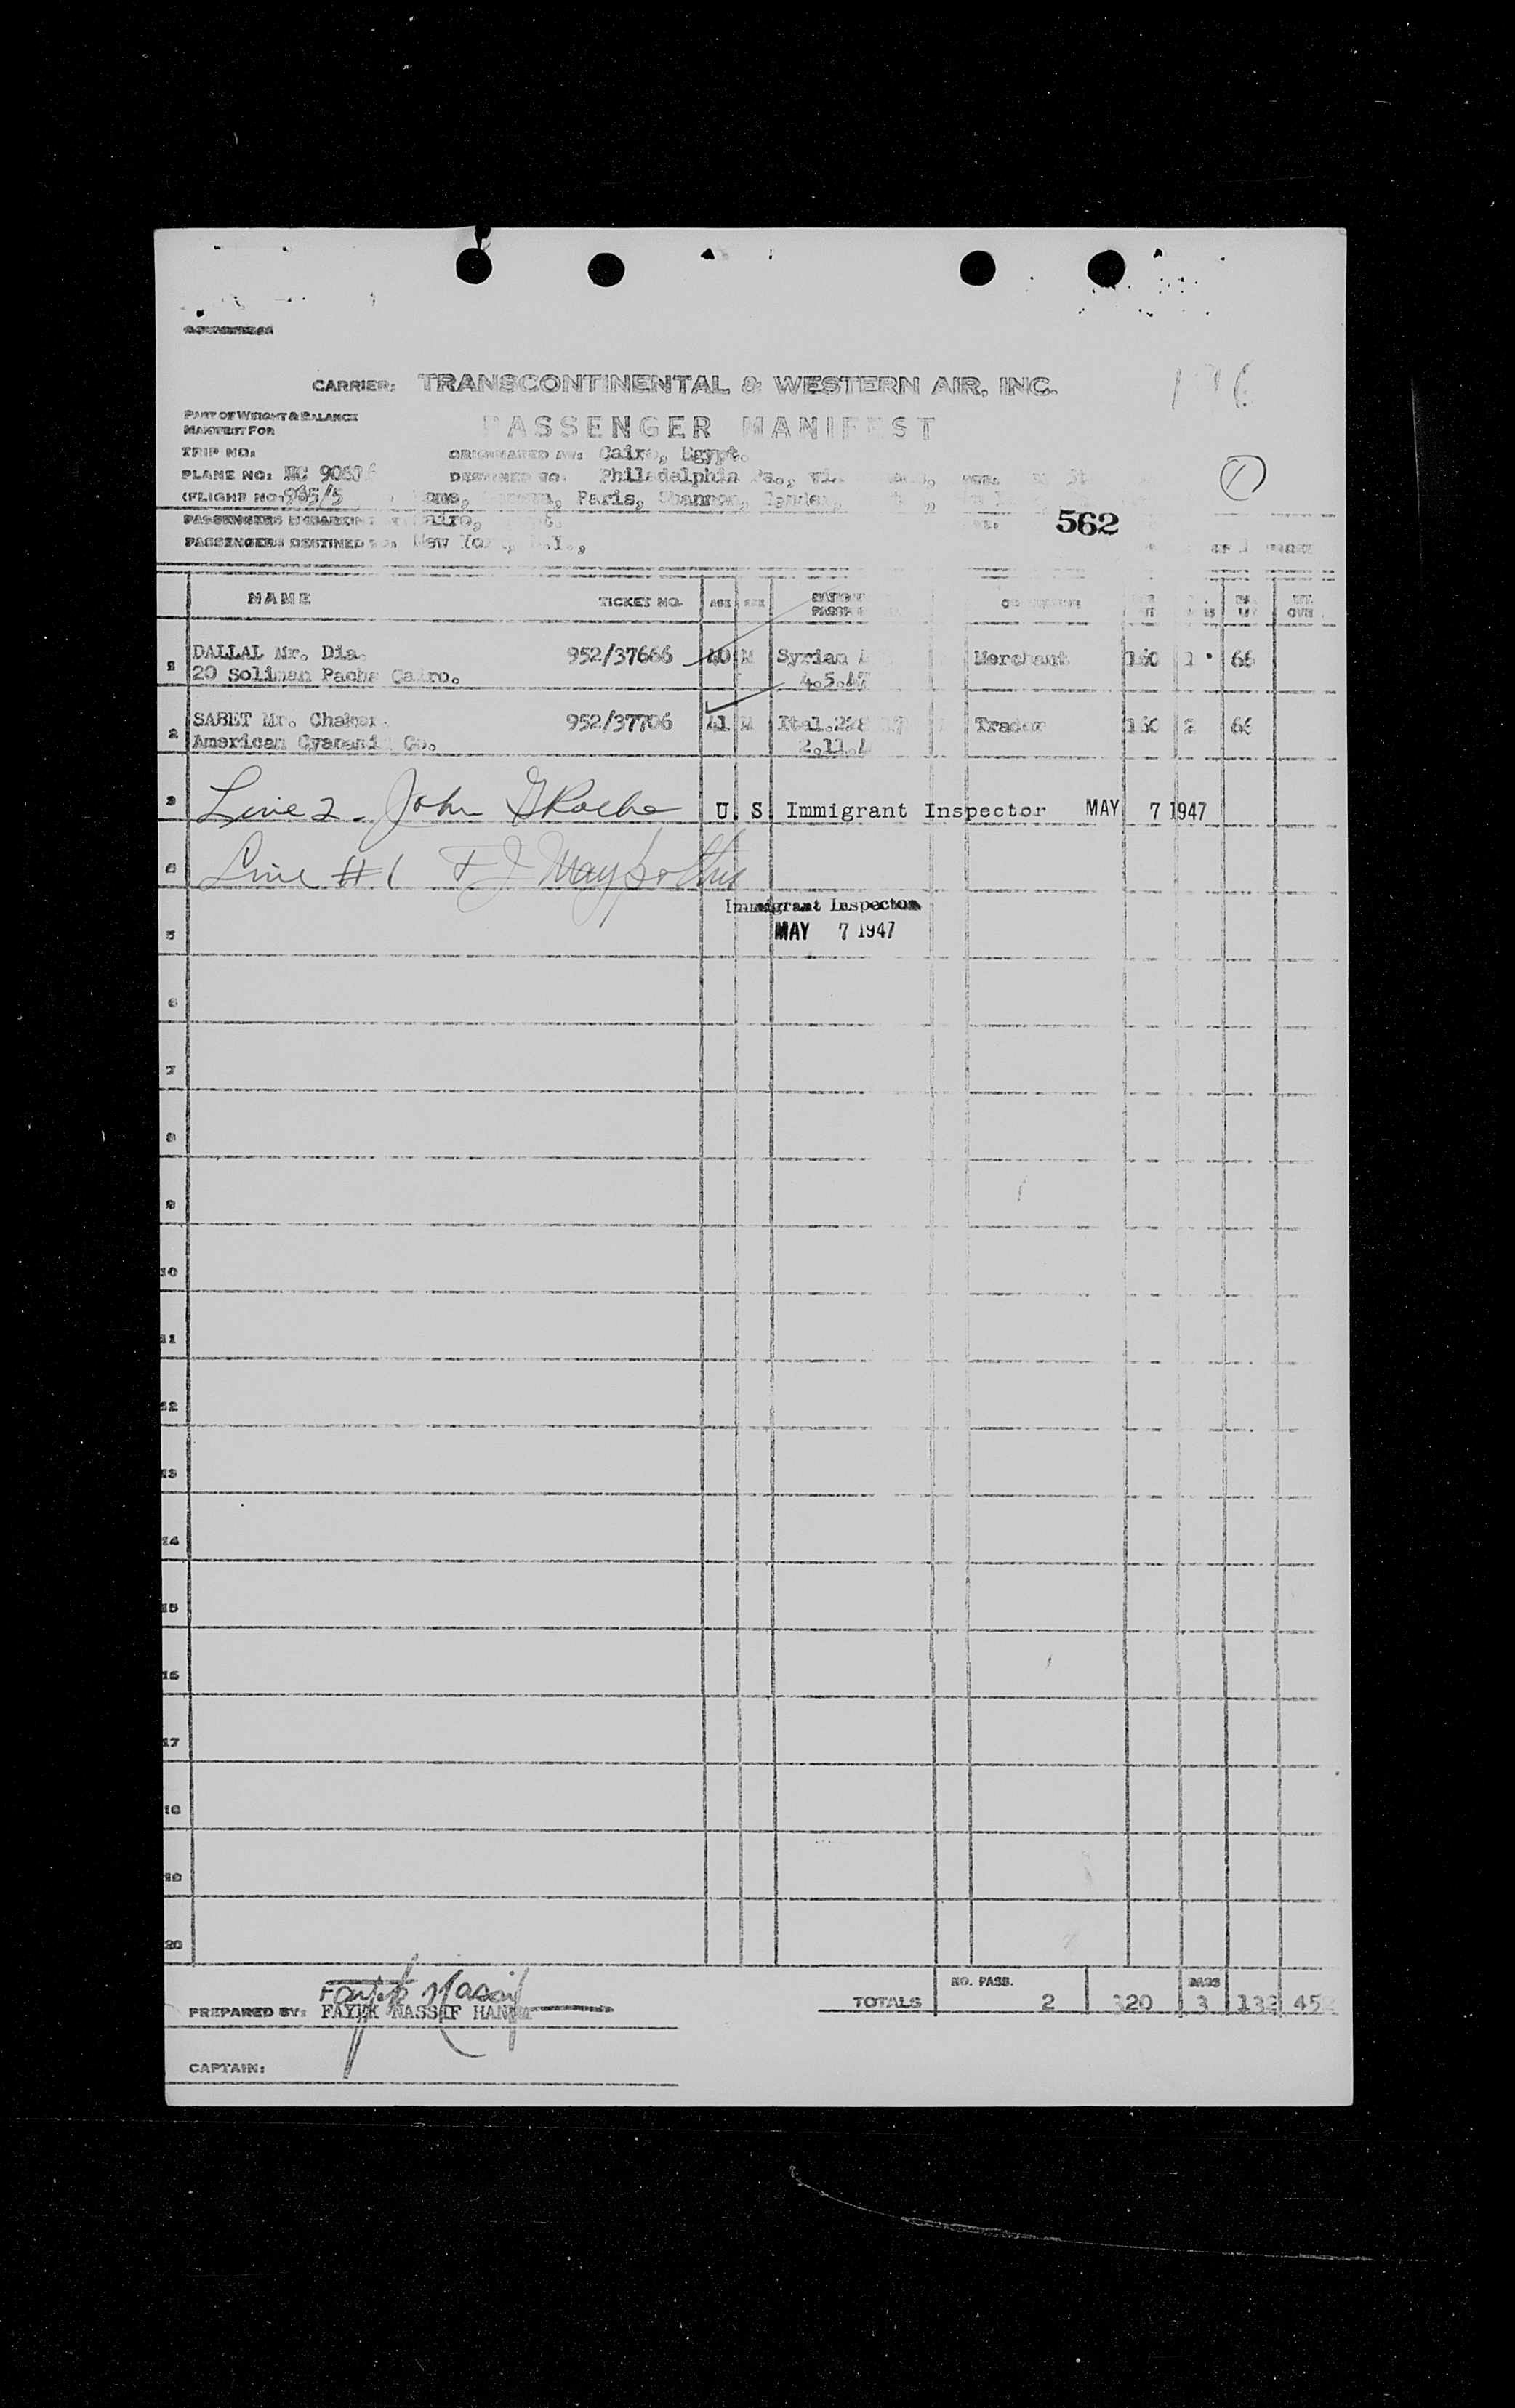 CARRIER: TRANSCONTINENTAL & WESTERN AIR, INC.
PART OF WEIGHT & BALANCE
MANIFEST FOR
PASSENGER MANIFEST
TRIP NO:
ORIGINATED AT: Cairo, Egypt.
PLANE NO: NC 9067
DESTINED TO: Philadelphia Pa.,
(FLIGHT NO 965/5
Rome, Paris, Shannon, Gander,
PASSENGERS EMBARKING AT Cairo,
562
PASSENGERS DESTINED TO: New York, N.Y.,
NAME TICKET NO. AGE SEX
1 DALLAL Mr. Dia. 952/37666 40 M Syrian Merchant 160 1 66
20 Soliman Pacha Cairo. 4.5.47
2 SABET Mr. 952/37706 41 M Ital. Trader 160 2 66
American Cyanamid Co. 2.11.4
3 Line 2. John G Roche U. S. Immigrant Inspector MAY 7 1947
Line #1
Immigrant Inspector
5 MAY 7 1947
6
7
8
9
10
11
12
13
14
15
16
17
18
19
20
NO. PASS. BAGS
TOTALS 2 320 3 132 452
PREPARED BY: FAYEK NASSIF HANNA
CAPTAIN: